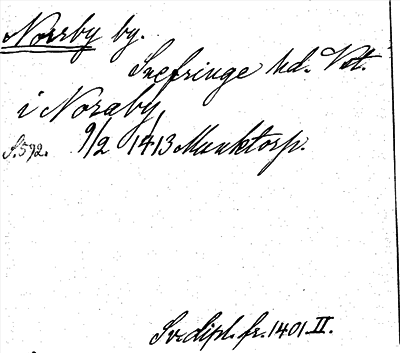 Norrby by.
Snefringe hd. Vstm.
i Noraby,
S. 592. 9/2 1413 Munktorp.
Sv. dipl. fr. 1401. II.